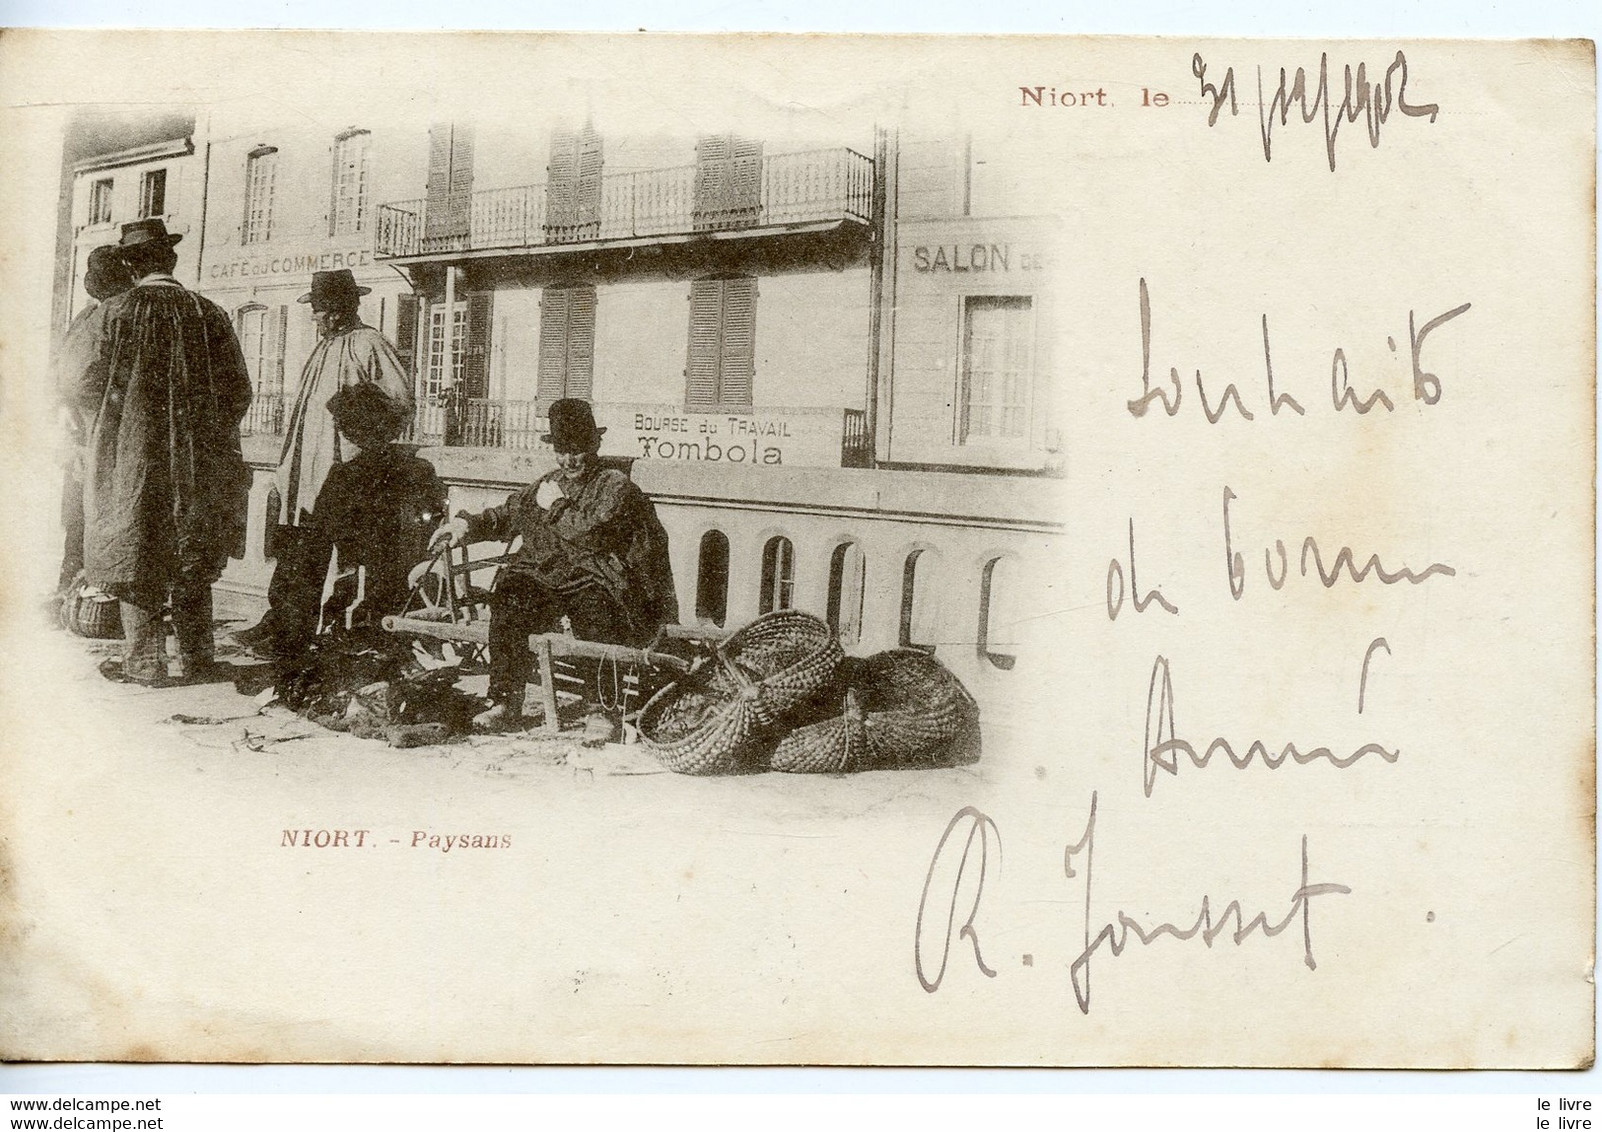 Niort, le 31/12/1902
CAFÉ DU COMMERCE
SALON DE
BOURSE du TRAVAIL
Tombola
Souhaits
de bonne
Année
R. Jousset.
NIORT. - Paysans
www.delcampe.com
www.delcampe.com
le livre
le livre